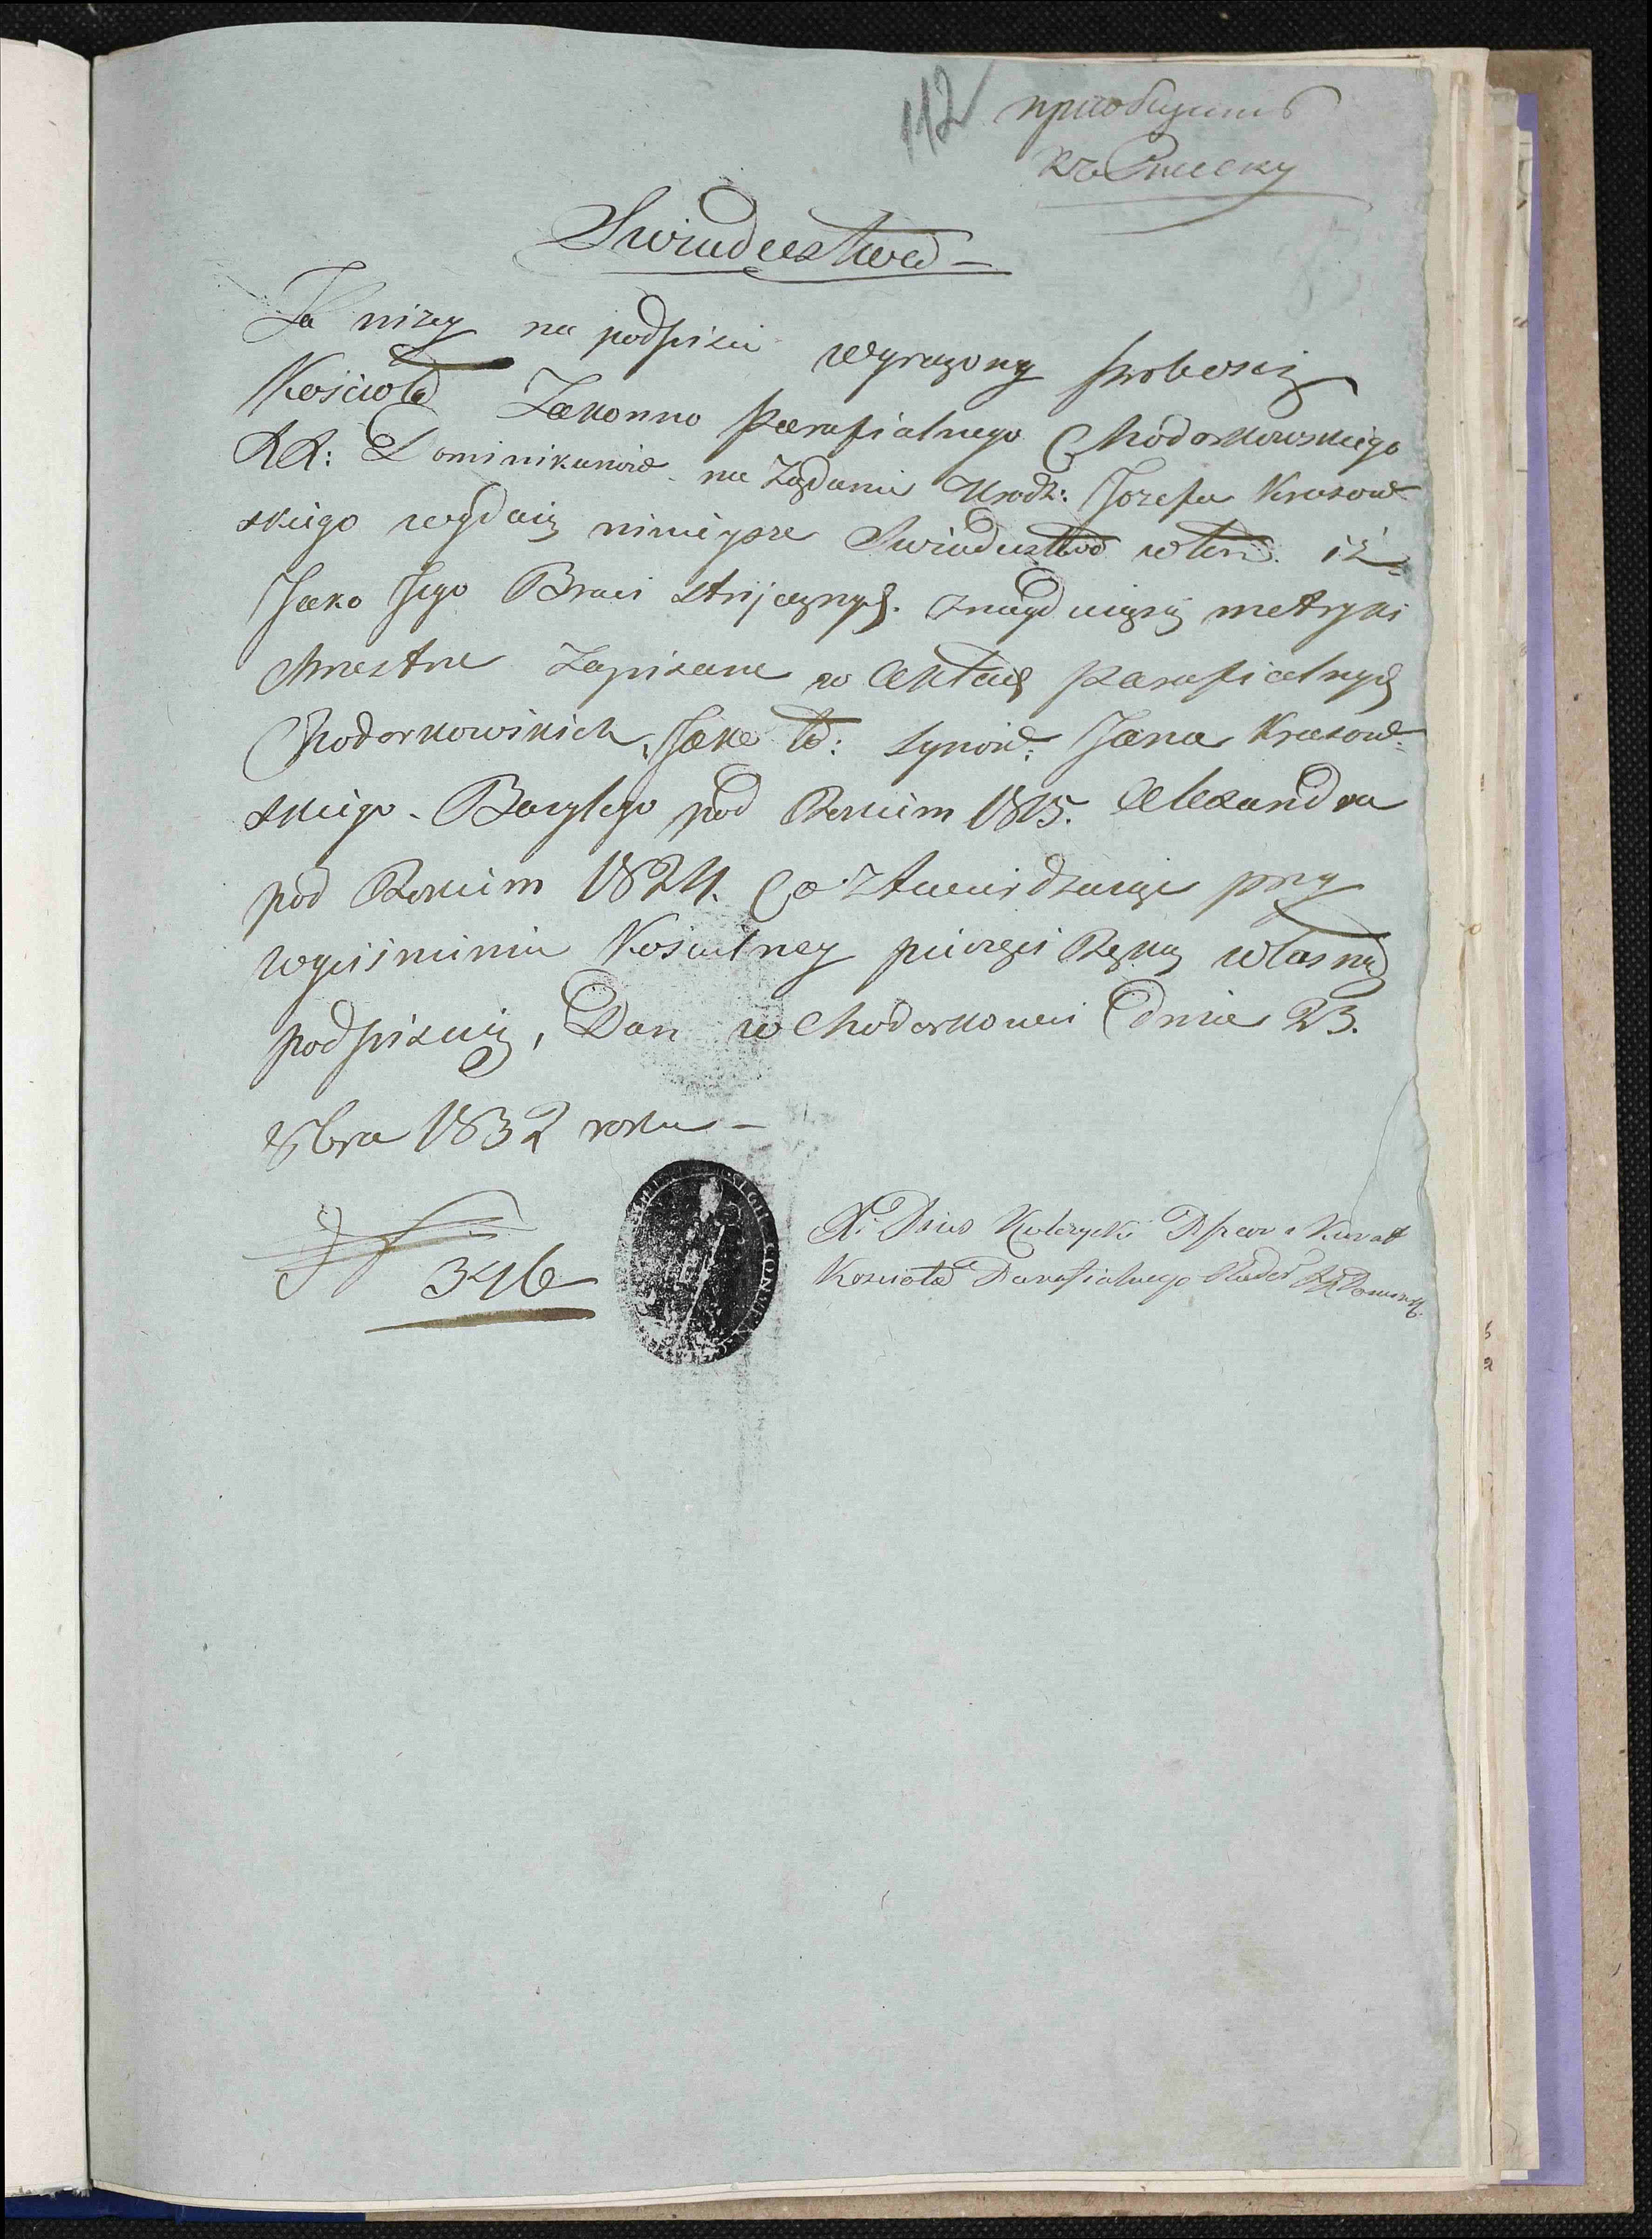 112
приобщить
къ списку
Swiadectwo –
Ja nizey na podpisie wyrazony proboszcz
Kościoła Zakonno Parafialnego Chodorkowskiego
RR: Dominikanów na Żądanie Urodz: Jozefa Krasow-
skiego wydaię ninieysze Swiadectwo w tem. iż
Jako Jego Braci stryjecznych. znayduią się metryki
chrzestne zapisane w Aktach Parafialnych
Chodorkowskich, Jako to: synow: Jana Krasow-
skiego. Bazylego pod Rokiem 1815. Alexandra
pod Rokiem 1824. Co ztwierdzaiąc przy
wyciśnieniu Koscielney pieczęci Ręką własną
podpisuię, Dan w Chodorkowie dnia 23.
8bra 1832 roku –
N 346
CONVE
X: Pius Kulczycki Kurat
Koscioła Parafialnego RR Domini